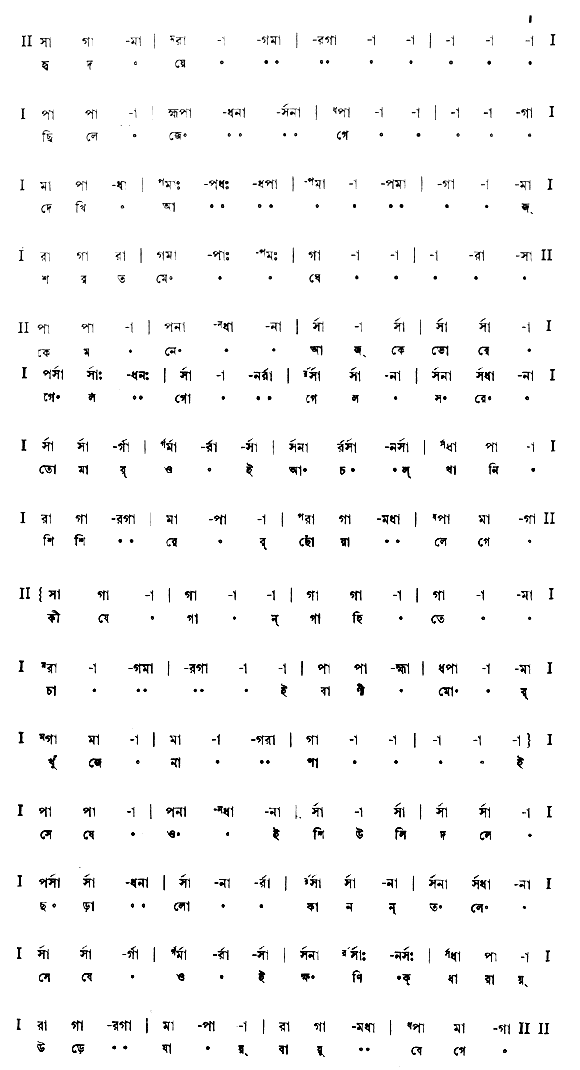 II সা গা -মা | ᵐরা -া -গমা | -রগা -া -া | -া -া -া I
হৃ দ ॰ য়ে ॰ ॰॰ ॰॰ ॰ ॰ ॰ ॰ ॰
I পা পা -া | হ্মপা -ধনা -র্সনা | ᶻপা -া -া | -া -া -গা I
ছি লে ॰ জে॰ ॰॰ ॰॰ গে ॰ ॰ ॰ ॰ ॰
I মা পা -ধা | ᵖমাঃ -পধঃ -ধপা | -ᵖমা -া -পমা | -গা -া -মা I
দে খি ॰ আ ॰॰ ॰॰ ॰ ॰ ॰॰ ॰ ॰ জ্
I রা গা রা | গমা -পাঃ -ᵖমঃ | গা -া -া | -া -রা -সা II
শ র ত মে॰ ॰ ॰ ঘে ॰ ॰ ॰ ॰ ॰
II পা পা -া | পনা -ⁿধা -না | র্সা -া র্সা | র্সা র্সা -া I
কে ম ॰ নে॰ ॰ ॰ আ জ্ কে তো রে ॰
I পর্সা র্সাঃ -ধনঃ | র্সা -া -নর্রা | র্রর্সা র্সা -না | র্সনা র্সধা -না I
গে॰ ল ॰॰ গো ॰ ॰॰ গে ল ॰ স॰ রে॰ ॰
I র্সা র্সা -র্গা | র্গর্মা -র্রা -র্সা | র্সনা র্রর্সা -নর্সা | র্সধা পা -া I
তো মা র্ ও ॰ ই আ॰ চ॰ ॰ল্ খা নি ॰
I রা গা -রগা | মা -পা -া | ᵖরা গা -মধা | ᶻপা মা -গা II
শি শি ॰॰ রে ॰ র্ ছোঁ য়া ॰॰ লে গে ॰
II { সা গা -া | গা -া -া | গা গা -া | গা -া -মা I
কী যে ॰ গা ॰ ন্ গা হি ॰ তে ॰ ॰
I ᵐরা -া -গমা | -রগা -া -া | পা পা -হ্মা | ধপা -া -মা I
চা ॰ ॰॰ ॰॰ ॰ ই বা ণী ॰ মো॰ ॰ র্
I ᵐগা মা -া | মা -া -গরা | গা -া -া | -া -া -া } I
খুঁ জে ॰ না ॰ ॰॰ পা ॰ ॰ ॰ ॰ ই
I পা পা -া | পনা -ⁿধা -না | র্সা -া র্সা | র্সা র্সা -া I
সে যে ॰ ও॰ ॰ ই শি উ লি দ লে ॰
I পর্সা র্সা -ধনা | র্সা -না -র্রা | র্রর্সা র্সা -না | র্সনা র্সধা -না I
ছ॰ ড়া ॰॰ লো ॰ ॰ কা ন ন্ ত॰ লে॰ ॰
I র্সা র্সা -র্গা | র্গর্মা -র্রা -র্সা | র্সনা র্রর্সাঃ -নর্সঃ | র্সধা পা -া I
সে যে ॰ ও ॰ ই ক্ষ॰ ণি ॰ক্ ধা রা য়্
I রা গা -রগা | মা -পা -া | রা গা -মধা | ᶻপা মা -গা II II
উ ড়ে ॰॰ যা ॰ য়্ বা য়ু ॰॰ বে গে ॰